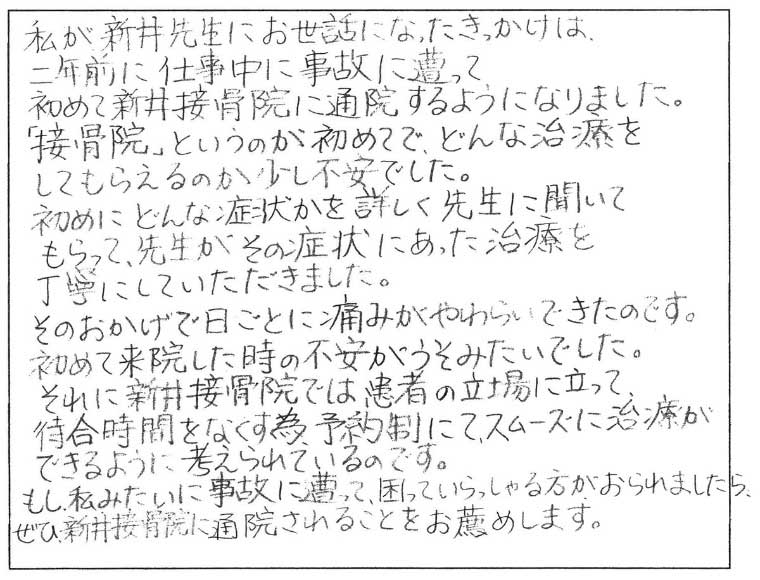 私が新井先生にお世話になったきっかけは、
二年前に仕事中に事故に遭って
初めて新井接骨院に通院するようになりました。
「接骨院」というのが初めてで、どんな治療を
してもらえるのか少し不安でした。
初めにどんな症状かを詳しく先生に聞いて
もらって、先生がその症状にあった治療を
丁寧にしていただきました。
そのおかげで日ごとに痛みがやわらいできたのです。
初めて来院した時の不安がうそみたいでした。
それに新井接骨院では患者の立場に立って、
待合時間をなくす為、予約制にて、スムーズに治療が
できるように考えられているのです。
もし、私みたいに事故に遭って、困っていらっしゃる方がおられましたら、
ぜひ、新井接骨院に通院されることをお薦めします。